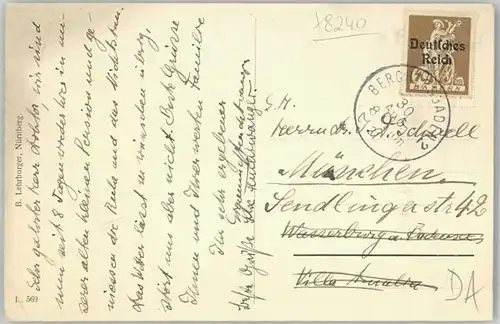 78240
Deutsches
Reich
BERCHTESGADEN
30
S. H.
Herrn Dr. Schnell
München
Sendlingerstr 42
Wasserburg a. Bodensee
Villa Amalia
DA
B. Lehrburger, Nürnberg.
L. 569
Sehr geehrter Herr Doktor, wir sind
nun seit 8 Tagen wieder hier in un-
serer alten kleinen Pension und ge-
niessen die Ruhe und das Nichtstun.
Das Wetter lässt zu wünschen übrig,
stört uns aber nicht. Beste Grüsse
Ihnen und Ihrer werten Familie
Ihr sehr ergebener
Beste Grüße